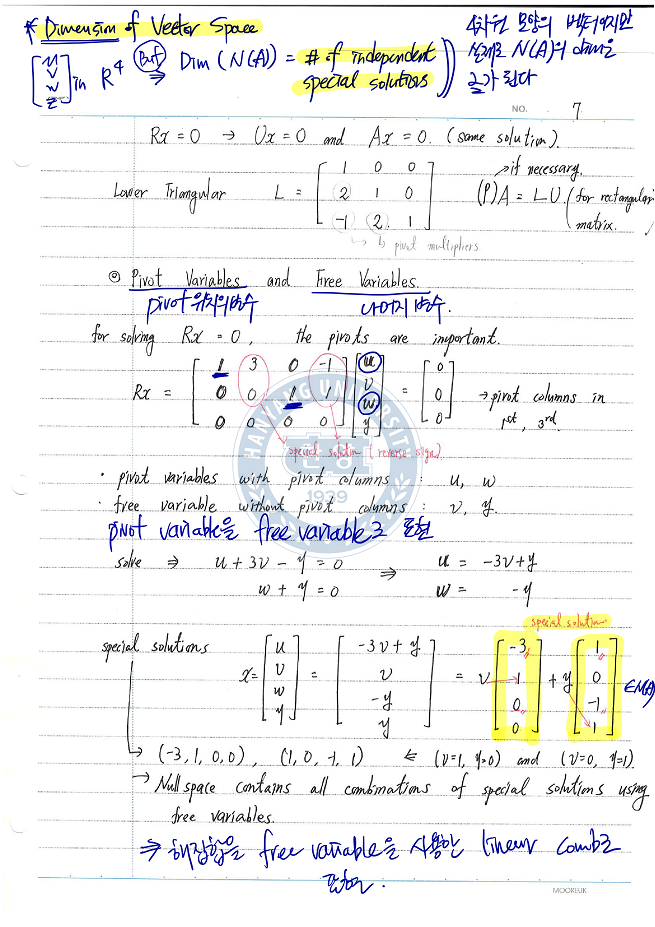 * Dimension of Vector Space
[u v w z] in R⁴ But ⇒ Dim (N(A)) = # of independent special solutions
4차원 모양의 벡터이지만
실제로 N(A)의 dim은
2가 된다
NO. 7
Rx = 0 → Ux = 0 and Ax = 0. (same solution).
Lower Triangular L = [1 0 0
2 1 0
-1 2 1]
↳ pivot multipliers
(P)A = LU (for rectangular matrix.
→ if necessary.
◎ Pivot Variables and Free Variables.
pivot 위치의 변수 나머지 변수.
for solving Rx = 0, the pivots are important.
Rx = [1 3 0 -1
0 0 1 1
0 0 0 0] [u v w y] = [0 0 0] → pivot columns in 1st, 3rd.
special solution (reverse sign)
HANYANG UNIVERSITY
한양
1939
· pivot variables with pivot columns : u, w
· free variable without pivot columns : v, y.
pivot variable을 free variable로 표현
solve ⇒ u + 3v - y = 0 ⇒ u = -3v + y
w + y = 0 w = -y
special solution
special solutions x = [u v w y] = [-3v + y v -y y] = v [-3 1 0 0] + y [1 0 -1 1] ∈ N(A)
→ (-3, 1, 0, 0), (1, 0, -1, 1) ⇐ (v=1, y=0) and (v=0, y=1).
→ Nullspace contains all combinations of special solutions using
free variables.
⇒ 해집합을 free variable을 사용한 linear comb로
표현.
MOOKEUK